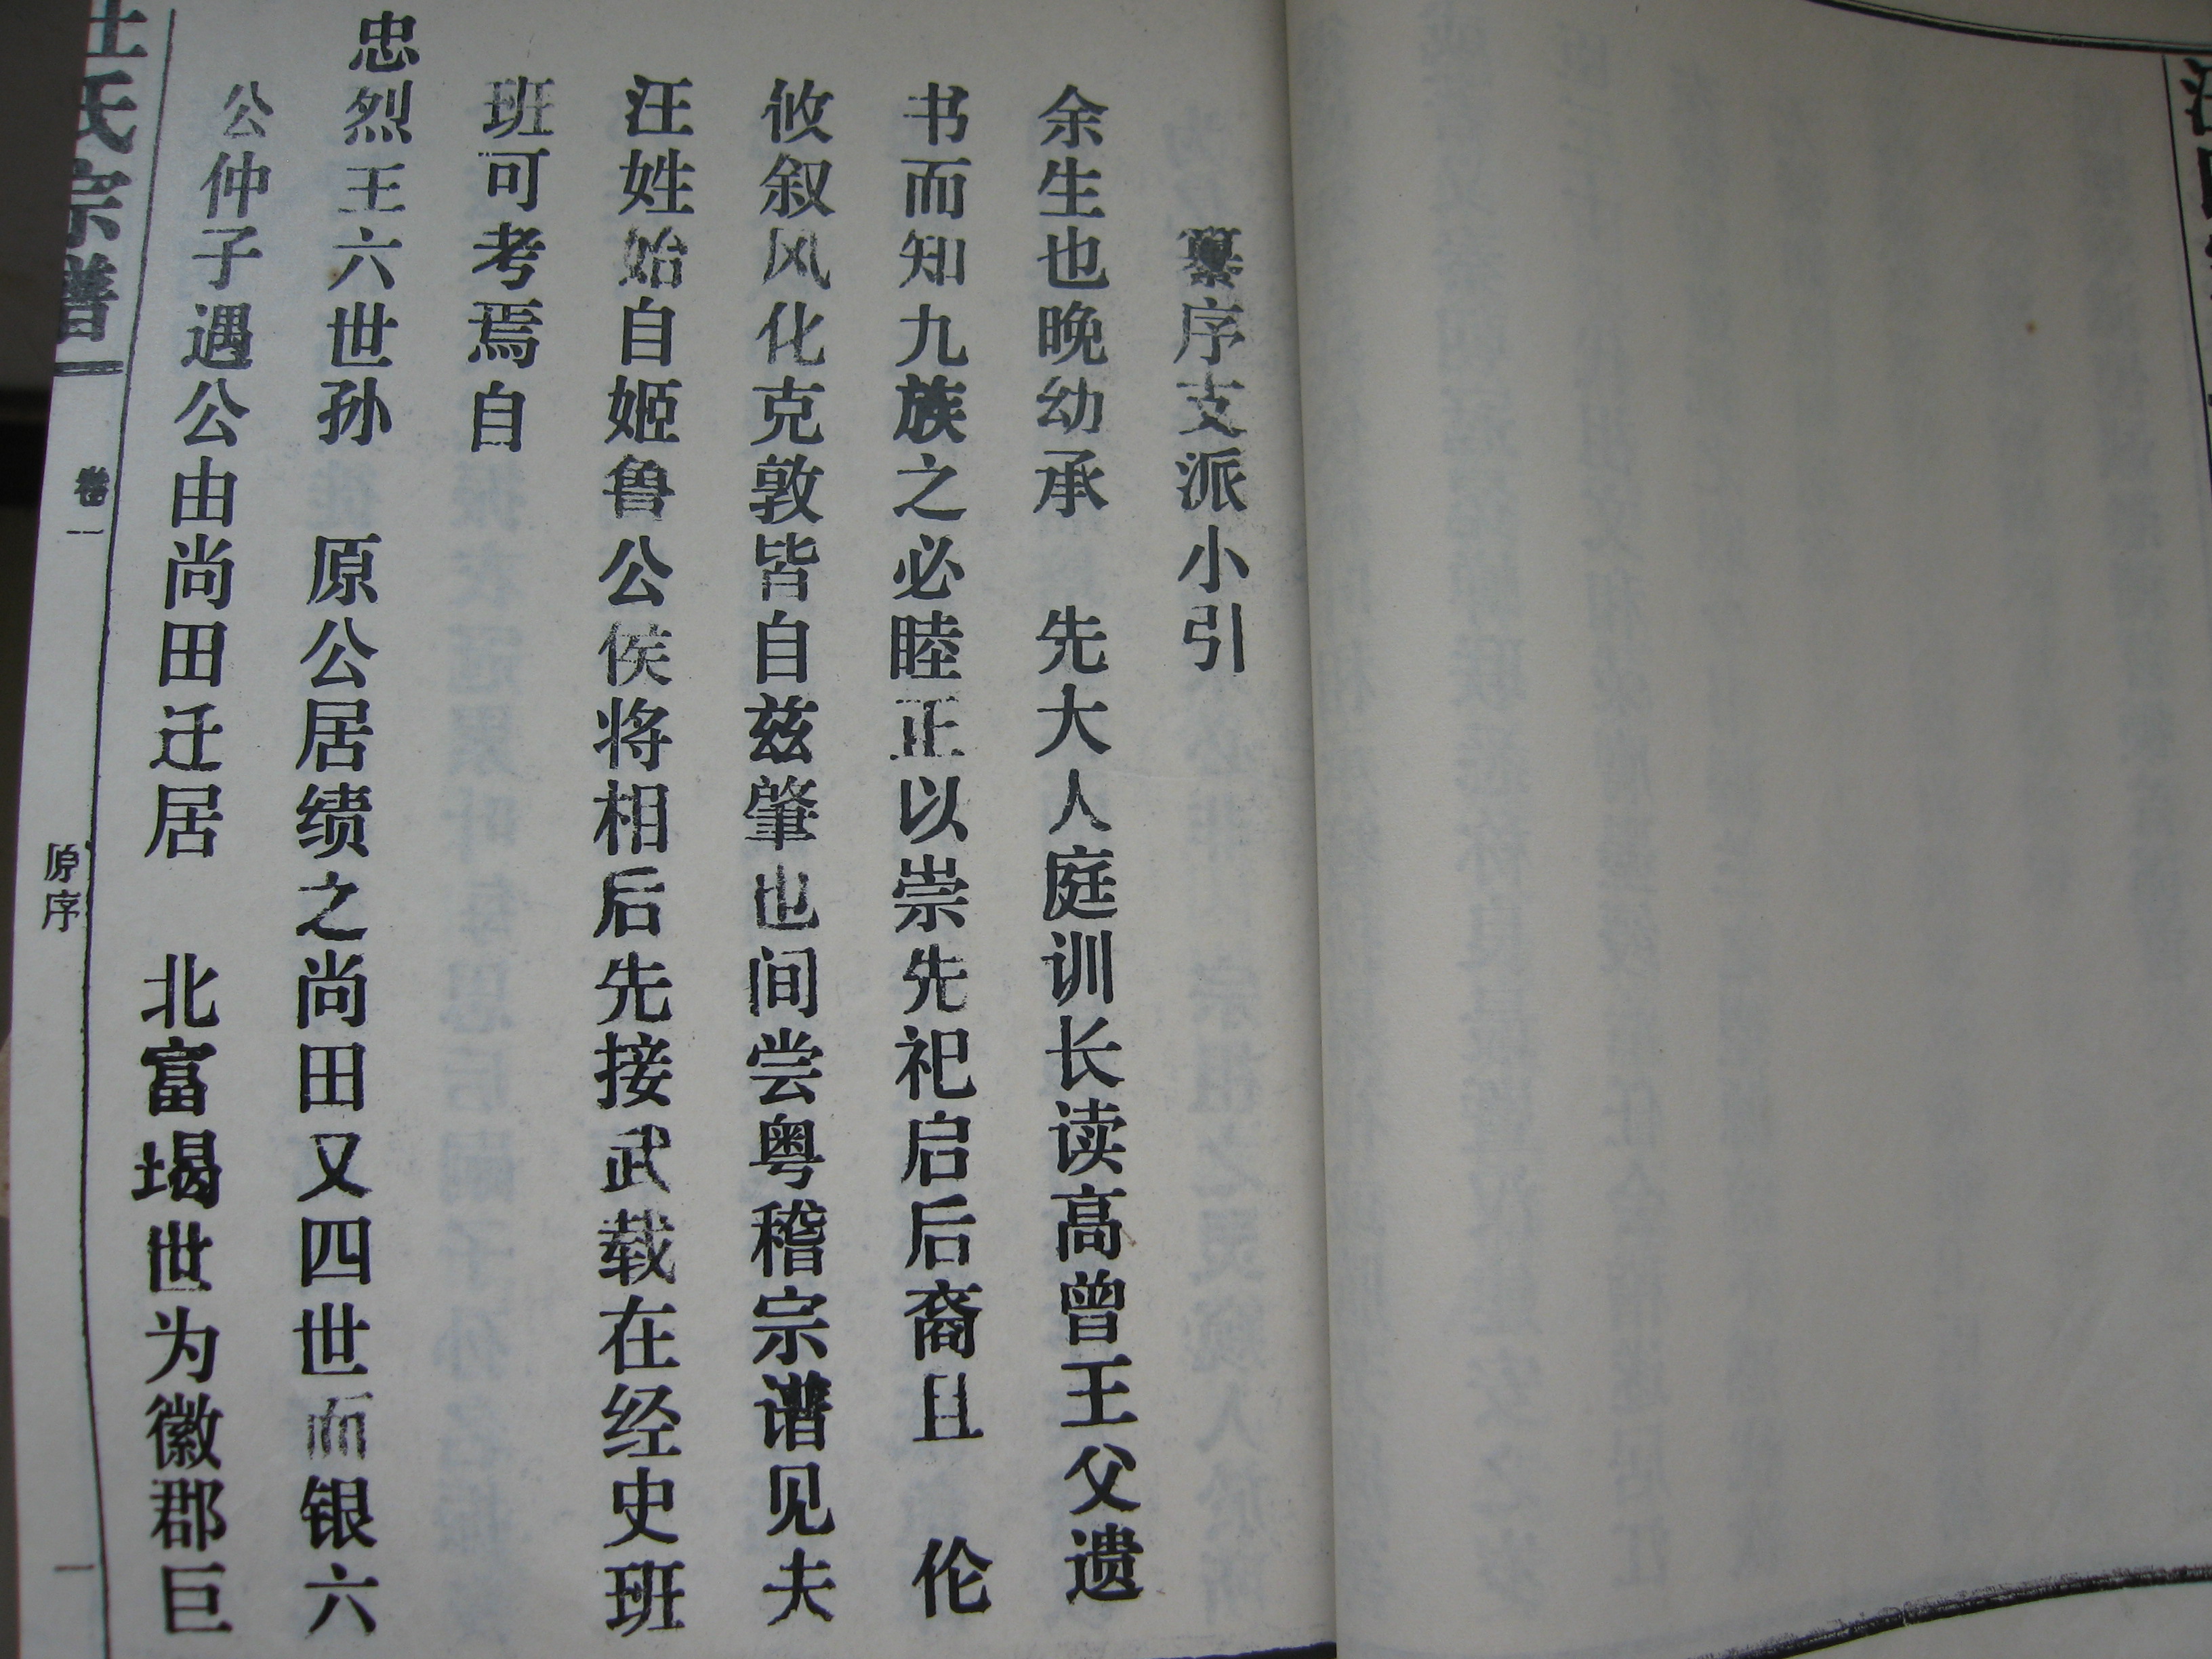 纂序支派小引
余生也晚幼承　先大人庭训长读高曾王父遗
书而知九族之必睦正以崇先祀启后裔且　伦
攸叙风化克敦皆自兹肇也间尝粤稽宗谱见夫
汪姓始自姬鲁公侯将相后先接武载在经史班
班可考焉自
忠烈王六世孙　原公居绩之尚田又四世而银六
公仲子遇公由尚田迁居　北富堨世为徽郡巨
汪氏宗谱
卷一
原序
一